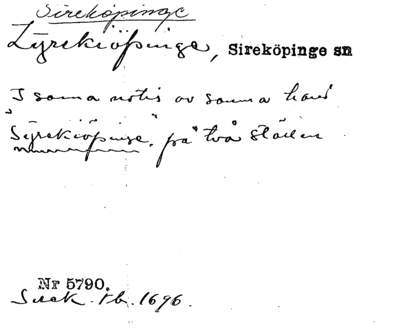 Sireköpinge
Syrekiöpinge, Sireköpinge sn
I samma notis av samma hand
"Syrekiöpinge" på två ställen
Nr 5790.
tb. 1696.